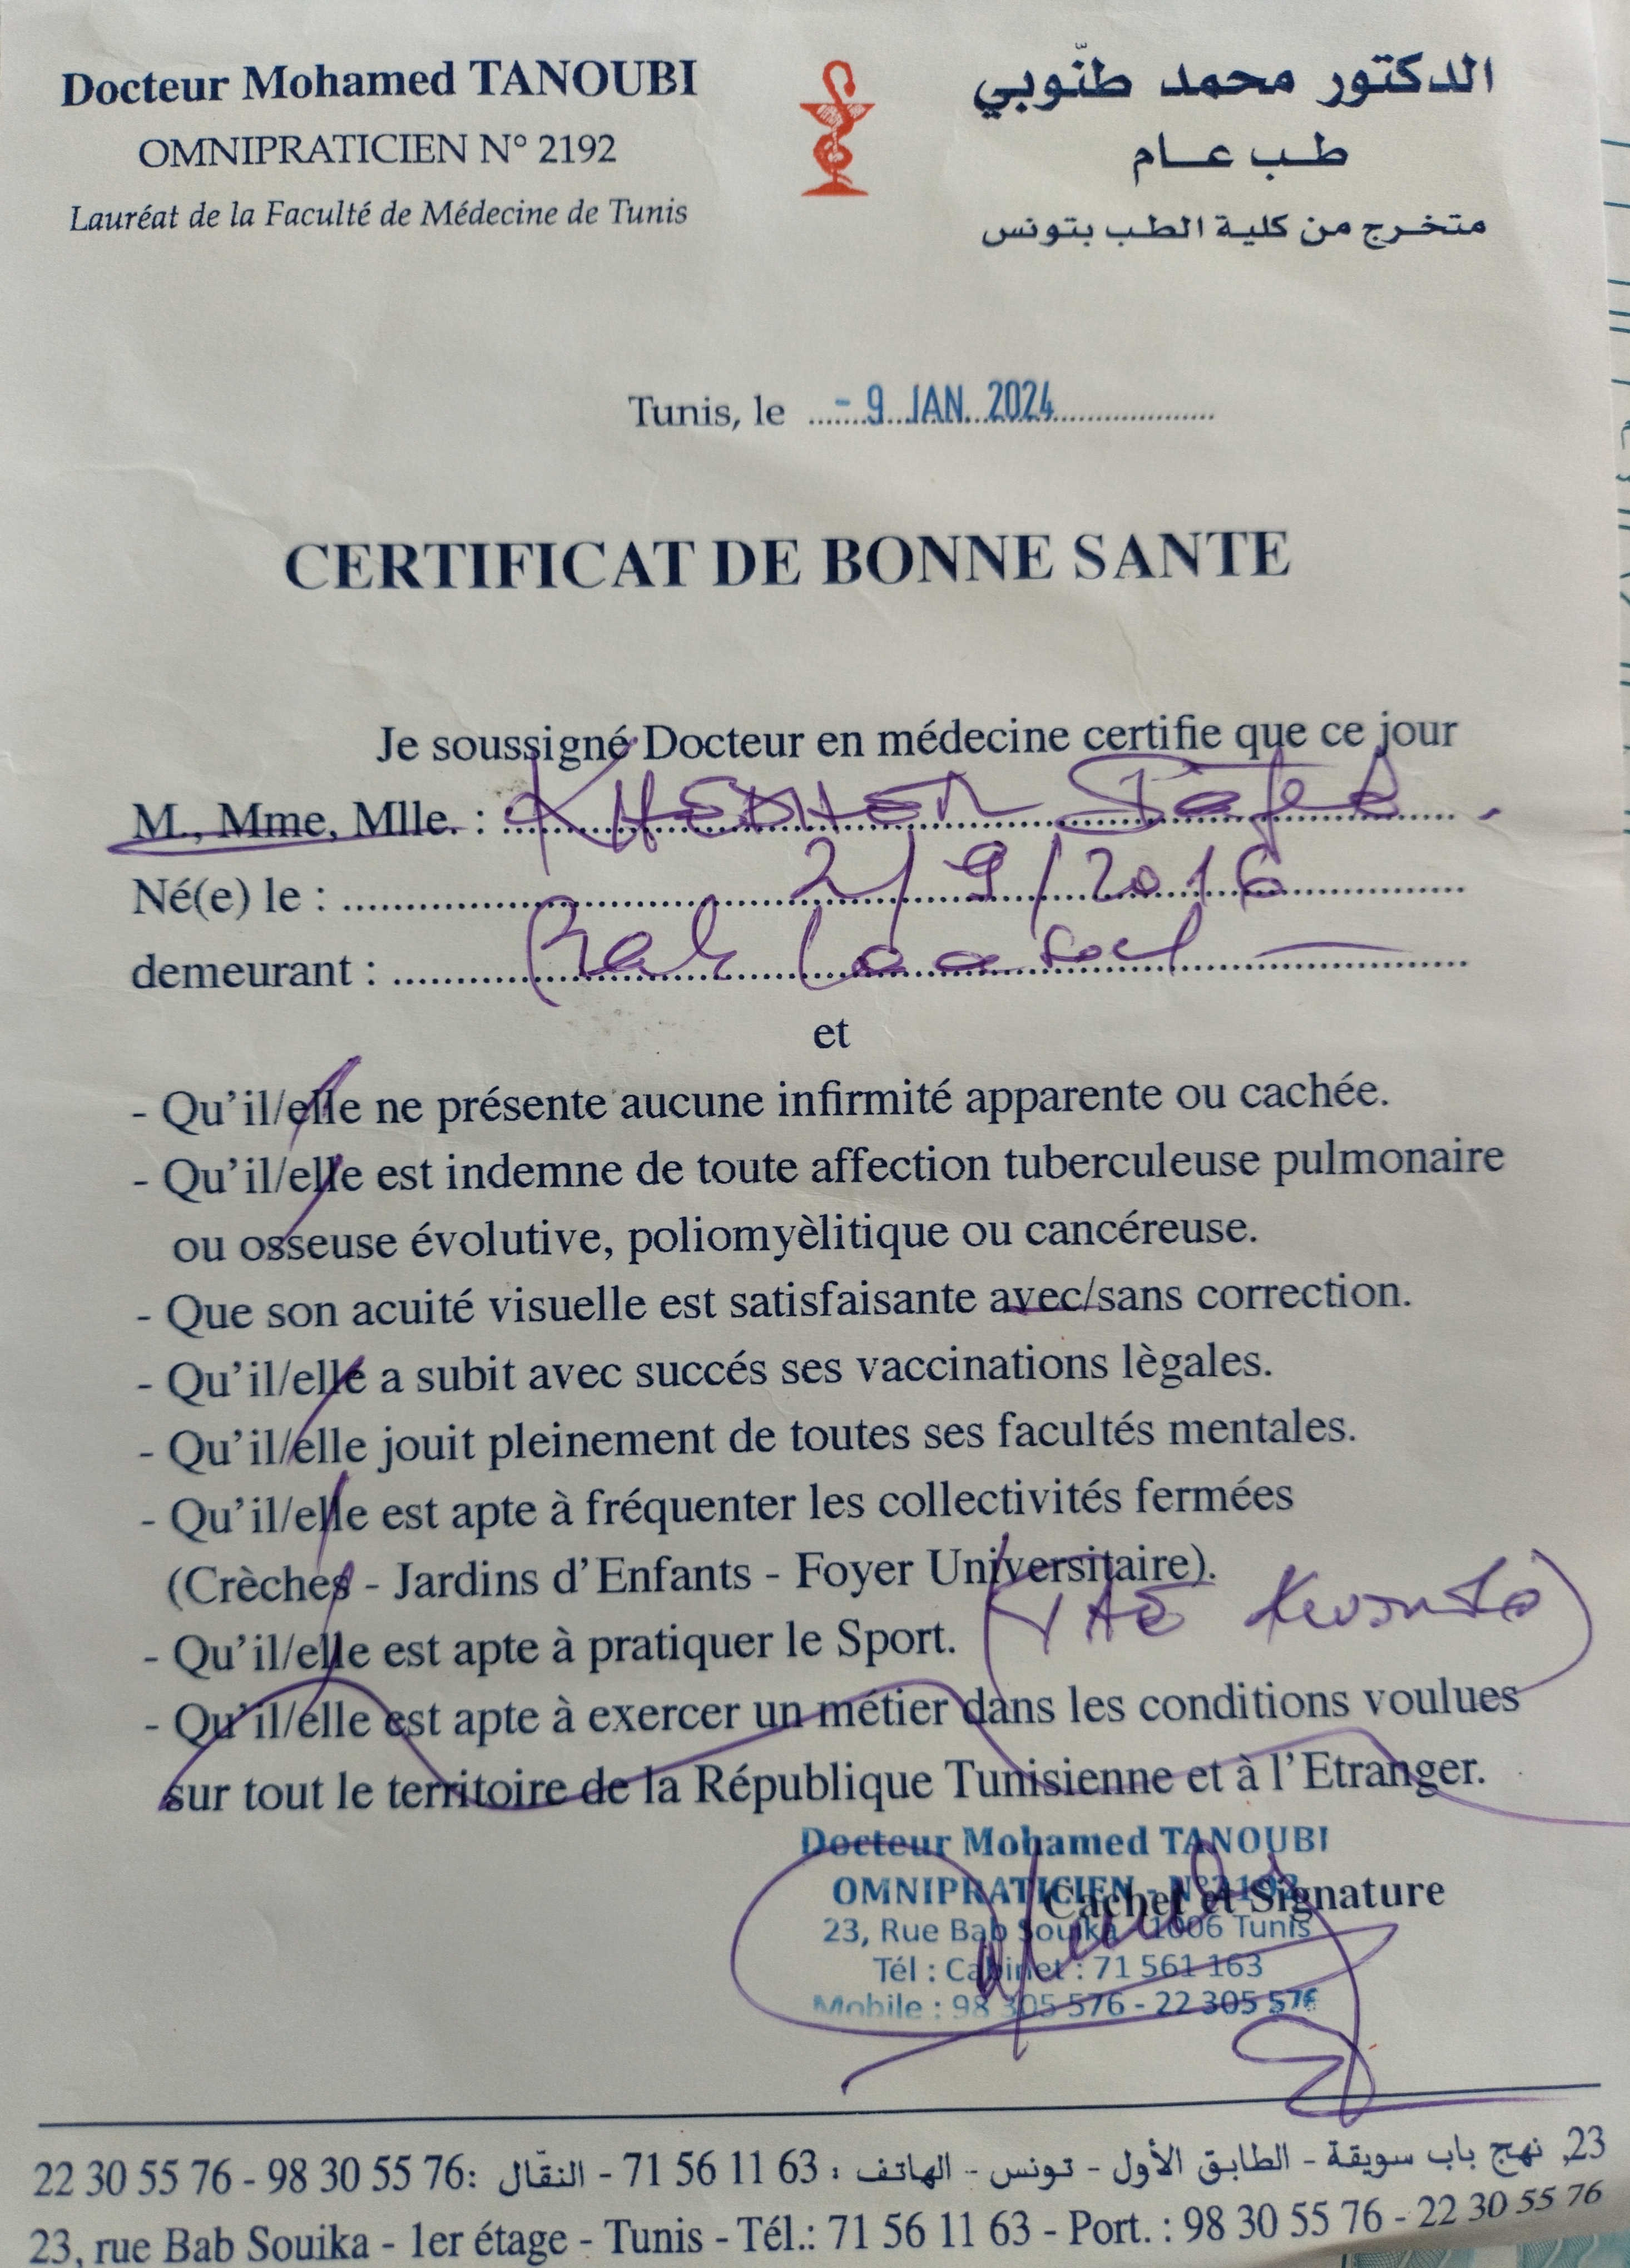 Docteur Mohamed TANOUBI
OMNIPRATICIEN N° 2192
Lauréat de la Faculté de Médecine de Tunis
الدكتور محمد طنّوبي
طب عام
متخرج من كلية الطب بتونس
Tunis, le - 9 JAN. 2024
CERTIFICAT DE BONNE SANTE
Je soussigné Docteur en médecine certifie que ce jour
M., Mme, Mlle. : KHEDHER
Né(e) le : 2/9/2016
demeurant : Bab
et
- Qu'il/elle ne présente aucune infirmité apparente ou cachée.
- Qu'il/elle est indemne de toute affection tuberculeuse pulmonaire
ou osseuse évolutive, poliomyèlitique ou cancéreuse.
- Que son acuité visuelle est satisfaisante avec/sans correction.
- Qu'il/elle a subit avec succés ses vaccinations lègales.
- Qu'il/elle jouit pleinement de toutes ses facultés mentales.
- Qu'il/elle est apte à fréquenter les collectivités fermées
(Crèches - Jardins d'Enfants - Foyer Universitaire).
- Qu'il/elle est apte à pratiquer le Sport.
- Qu'il/elle est apte à exercer un métier dans les conditions voulues
sur tout le territoire de la République Tunisienne et à l'Etranger.
Cachet et Signature
Docteur Mohamed TANOUBI
OMNIPRATICIEN - N°2192
23, Rue Bab Souika - 1006 Tunis
Tél : Cabinet : 71 561 163
Mobile : 98 305 576 - 22 305 576
23, نهج باب سويقة - الطابق الأول - تونس - الهاتف : 63 11 56 71 - النقّال : 76 55 30 98 - 76 55 30 22
23, rue Bab Souika - 1er étage - Tunis - Tél.: 71 56 11 63 - Port. : 98 30 55 76 - 22 30 55 76